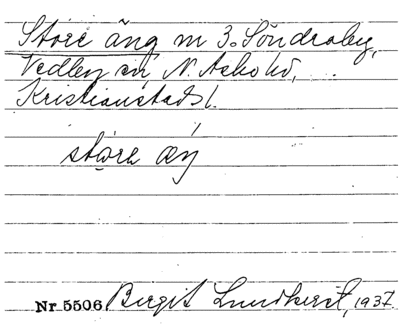 Store äng m 3. Söndraby,
Vedby sn N. Åsbo hd,
Kristianstads l.
störe æŋ
Nr 5506 Birgit Lundkvist, 1937